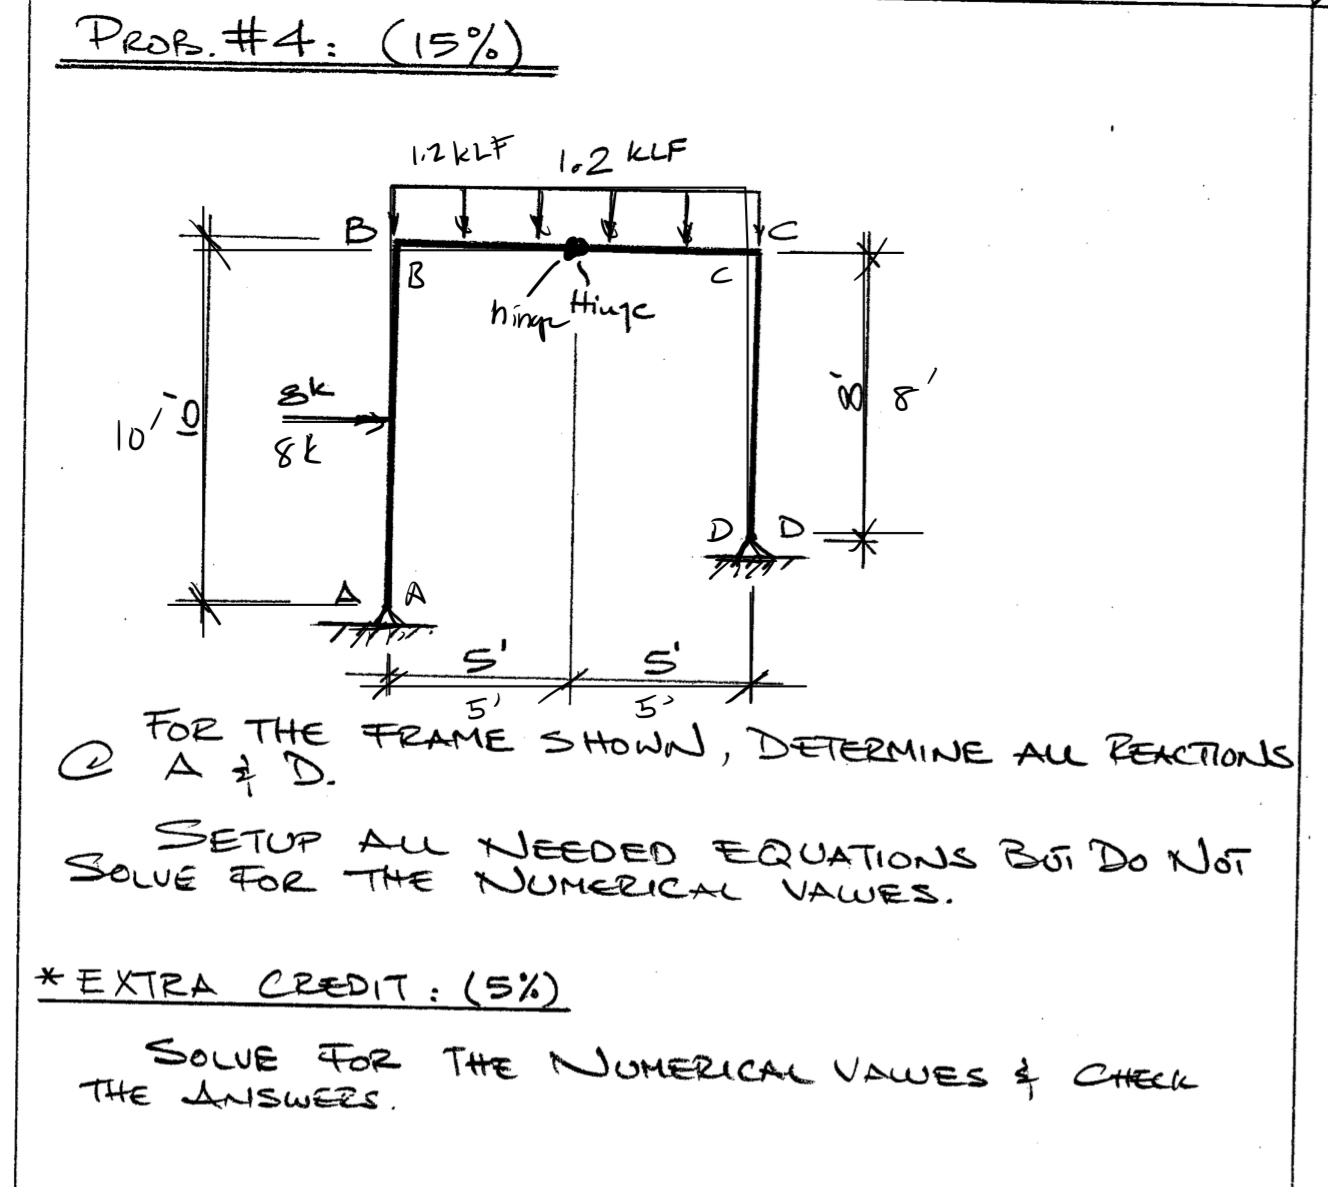 PROB. #4: (15%)
1.2 KLF 1.2 KLF
B C
B C
hinge Hinge
8k
8k
10'-0
8' 8'
D D
A A
5' 5'
5' 5'
FOR THE FRAME SHOWN, DETERMINE ALL REACTIONS
@ A & D.
SETUP ALL NEEDED EQUATIONS BUT DO NOT
SOLVE FOR THE NUMERICAL VALUES.
* EXTRA CREDIT: (5%)
SOLVE FOR THE NUMERICAL VALUES & CHECK
THE ANSWERS.